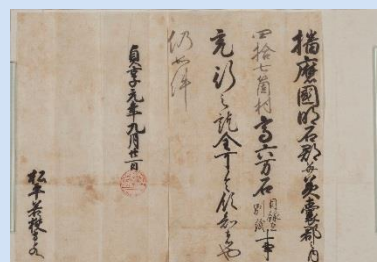 播磨國明石郡美嚢郡之内
四拾七箇村高六万石目録在別紙事
充行之訖全可令領知者也
仍如件
貞享元年九月廿一日
松平若狭守とのへ